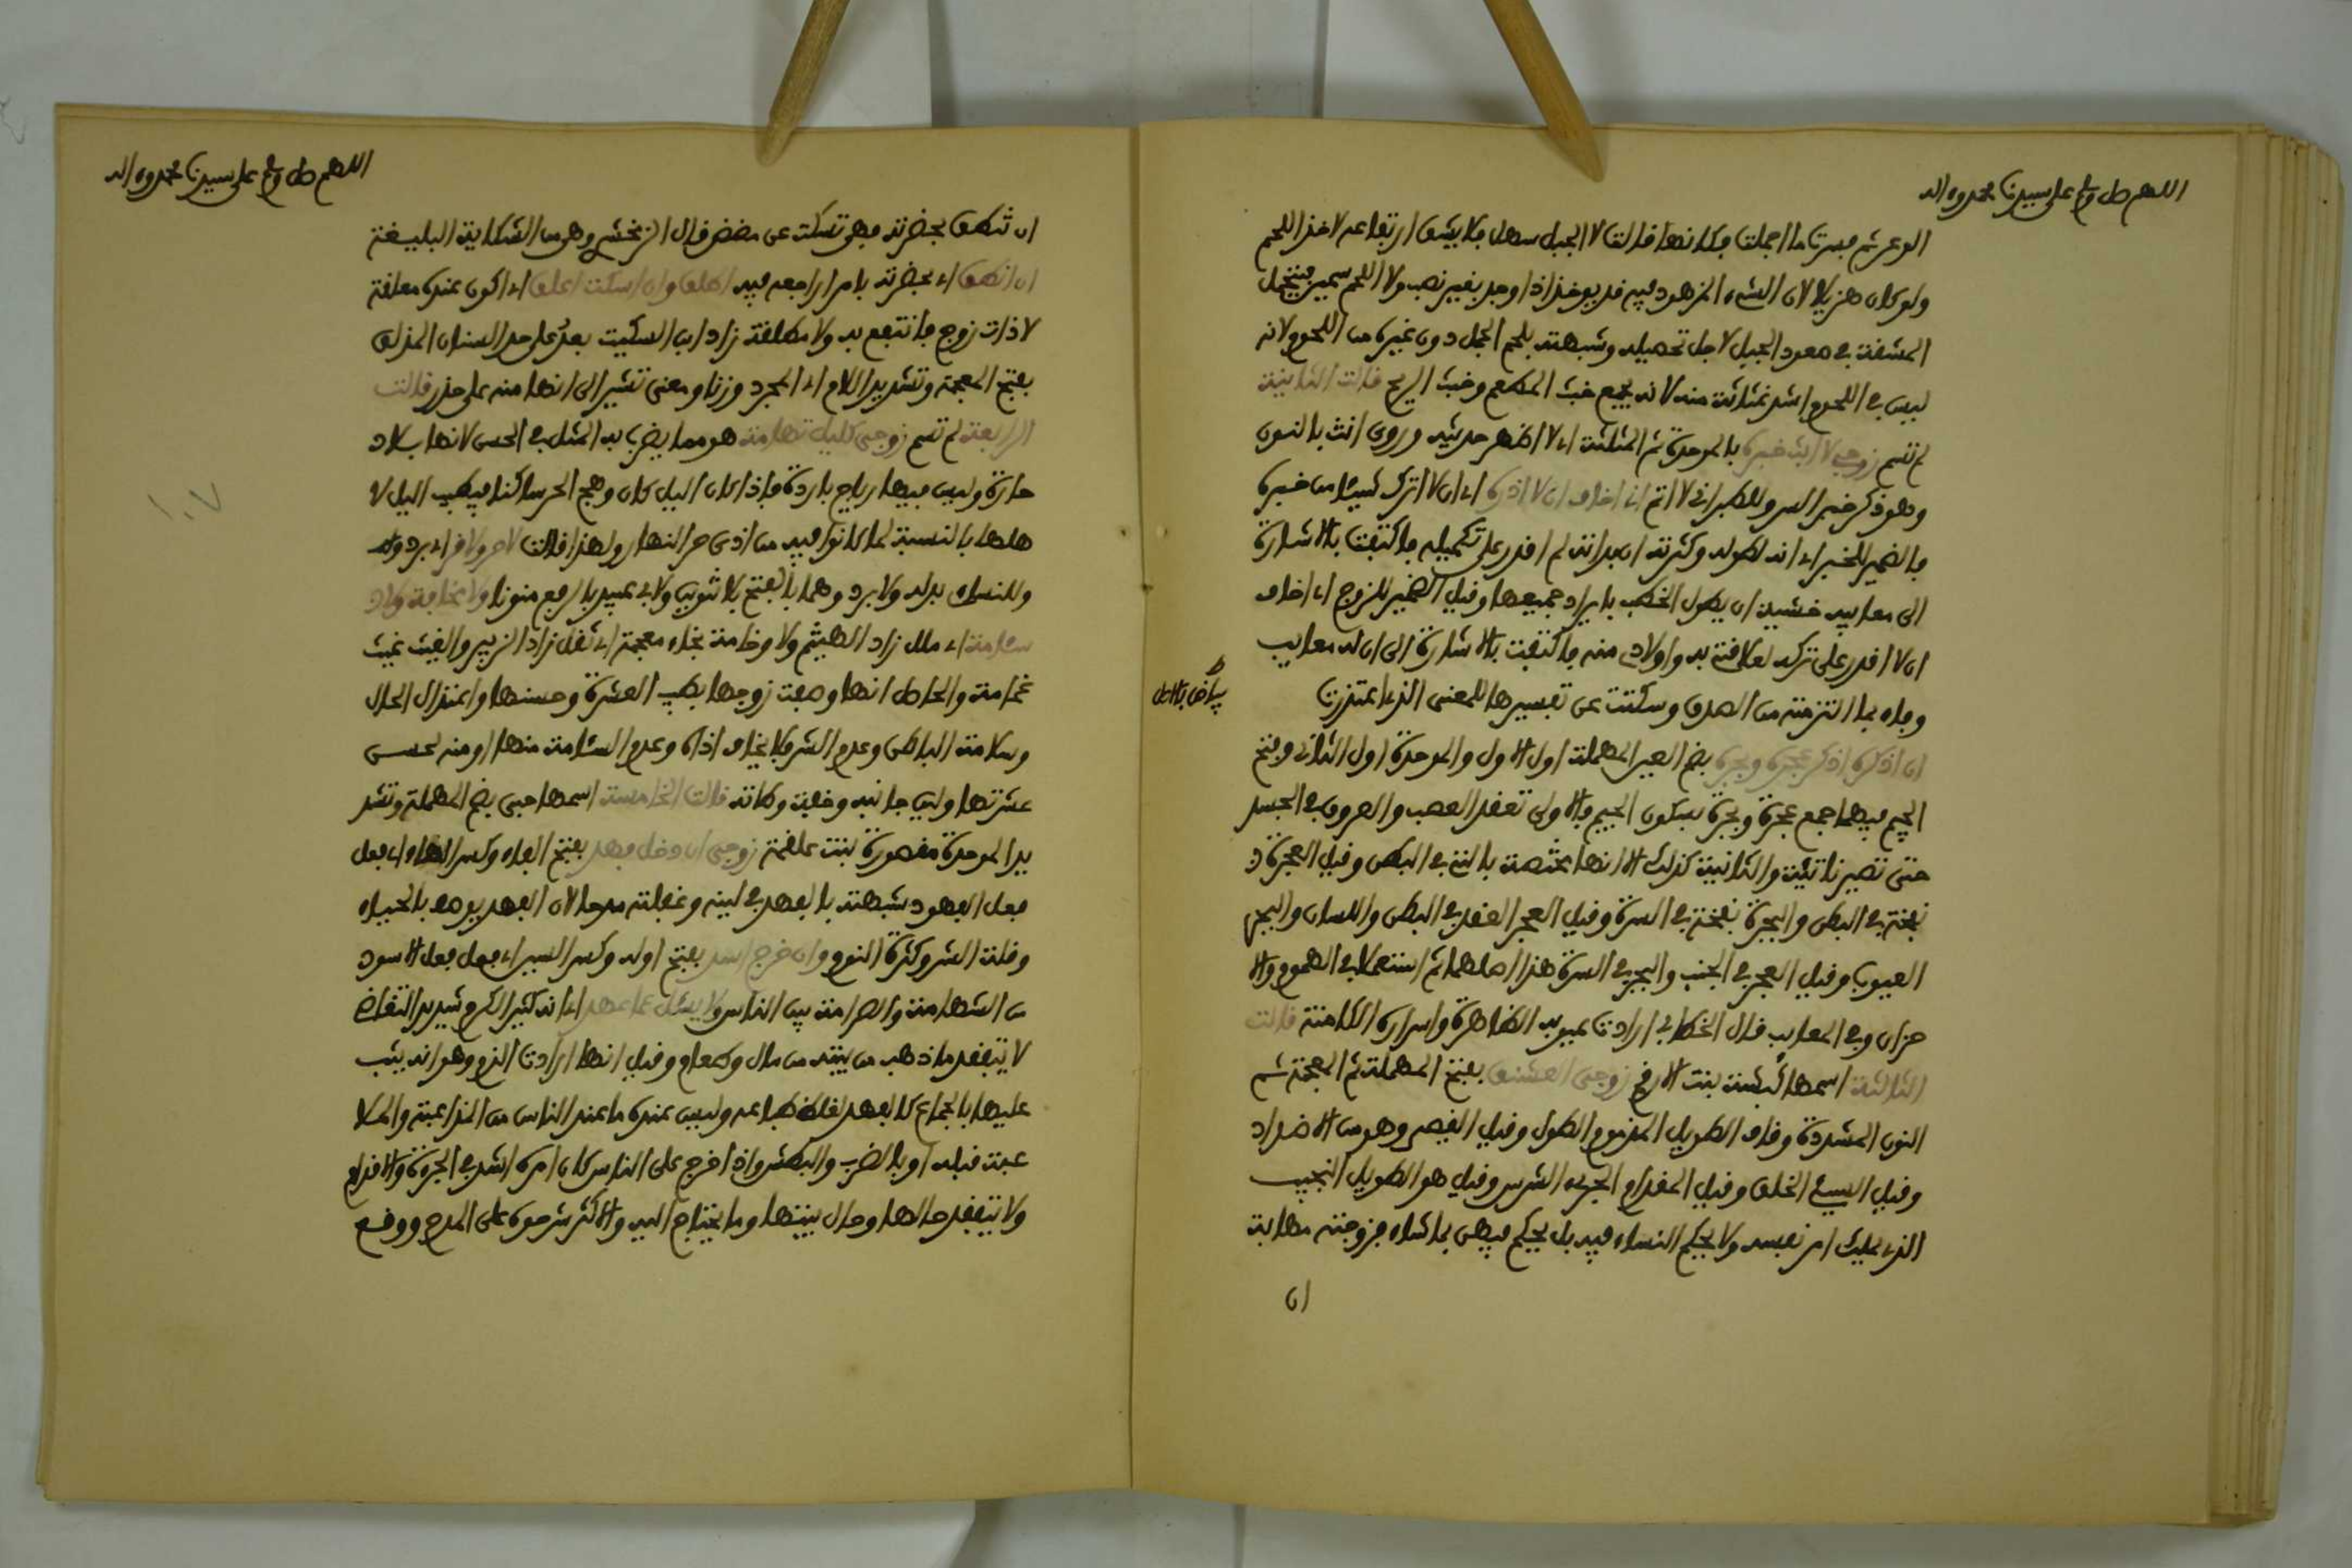 اللهم صل وسلم على سيدنا محمد وءاله
الوعر ثم فسرت ما اجملت فكانها قالت لا الجبل سهل فلا يشق ارتقاءه لاخذ اللحم
ولو كان هزيلا لان الشيء المزهود فيه قد يوخذ اذا وجد بغير نصب ولا اللحم سمين فيتحمل
المشقة في صعود الجبل لاجل تحصيله وشبهته بلحم الجمل دون غيره من اللحوم لانه
ليس في اللحوم اشد غثاثة منه لانه يجمع خبث المطعم وخبث الريح قالت الثانية
لم تسم زوجي لا ابث خبره بالموحدة ثم المثلثة اي لا اظهر حديثه وروي انث بالنون
وهو ذكر خبر السر وللطبراني لا انم اني اخاف ان لا اذره اي ان لا اترك شيئا من خبره
فالضمير للخبر اي انه لطوله وكثرته ان بداته لم اقدر على تكميله فاكتفت بالاشارة
الى معايبه خشية ان يطول الخطب بايراد جميعها وقيل الضمير للزوج اي اخاف
ان لا اقدر على تركه لعلاقتي به واولادي منه فاكتفت بالاشارة الى ان له معايب
وفاء بما التزمته من الصدق وسكتت عن تفسيرها للمعنى الذي اعتذرت
بياض بالاصل
ان اذكره اذكر عجره وبجره بضم العين المهملة اول الاول والموحدة اول الثاني وفتح
الجيم فيهما جمع عجرة وبجرة بسكون الجيم فالاولى تعقد العصب والعروق في الجسد
حتى تصير ناتئة والثانية كذلك الا انها مختصة بالتي في البطن وقيل العجرة
نفخة في البطن والبجرة نفخة في السرة وقيل العجر العقد في البطن واللسان والبجر
العيوب وقيل العجر في الجنب والبجر في السرة هذا اصلهما ثم استعملا في الهموم والا
حزان وفي المعايب قال الخطابي ارادت عيوبه الظاهرة واسراره الكامنة قالت
الثالثة اسمها كبشة بنت الارقم زوجي العشنق بفتح المهملة ثم المعجمة ثم
النون المشددة وقاف الطويل المذموم الطول وقيل القصير وهو من الاضداد
وقيل السيئ الخلق وقيل المقدام الجريء الشرس وقيل هو الطويل النجيب
الذي يملك امر نفسه ولا يحكم النساء فيه بل يحكم فيهن بما شاء فزوجته تهابه
ان
اللهم صل وسلم على سيدنا محمد وءاله
ان تنطق بحضرته فهي تسكت على مضض قال الزمخشري وهو من الشكاية البليغة
ان انطق اي بحضرته بامر اراجعه فيه اطلق وان اسكت اعلق اي اكون عنده معلقة
لا ذات زوج فانتفع به ولا مطلقة زاد ابن السكيت بعد على حد السنان المذلق
بفتح المعجمة وتشديد اللام اي المجرد وزنا ومعنى تشير الى انها منه على حذر قالت
الرابعة لم تسم زوجي كليل تهامة هو مما يضرب به المثل في الحسن لانها بلاد
حارة وليس فيها رياح باردة فاذا كان اليل كان وهج الحر ساكنا فيطيب اليل لا
هلها بالنسبة لما كانوا فيه من اذى حر النهار ولهذا قالت لا حر ولا قر اي برد وله
وللنساءي بدله ولا برد وهما بالفتح بلا تنوين ولابي عبيد بالرفع منونا ولا مخافة ولا
سئامة اي ملل زاد الهيثم ولا وخامة بخاء معجمة اي ثقل زاد الزبير والغيث غيث
غمامة والحاصل انها وصفت زوجها بطيب العشرة وحسنها واعتدال الحال
وسلامة الباطن وعدم الشر فلا يخاف اذاه وعدم السئامة منها او منه لحسن
عشرتها ولين جانبه وخفة وطاته قالت الخامسة اسمها حبى بضم المهملة وتشد
يد الموحدة مقصورة بنت علقمة زوجي ان دخل فهد بفتح الفاء وكسر الهاء اي فعل
فعل الفهود شبهته بالفهد في لينه وغفلته مدحا لان الفهد يوصف بالحياء
وقلة الشر وكثرة النوم وان خرج اسد بفتح اوله وكسر السين اي فعل فعل الاسود
من الشهامة والصرامة بين الناس ولا يسئل عما عهد اي انه كثير الكرم شديد التغاضي
لا يتفقد ما ذهب من بيته من مال وطعام وقيل انها ارادت الذم وهو انه يثب
عليها بالجماع كالفهد لغلظ طباعه وليس عنده ما عند الناس من المداعبة والملا
عبة قبله او بالضرب والبطش واذا خرج على الناس كان امره اشد في الجرءة والاقدام
ولا يتفقد حالها وحال بيتها وما يحتاج اليه والاكثر شرحوه على المدح ووقع